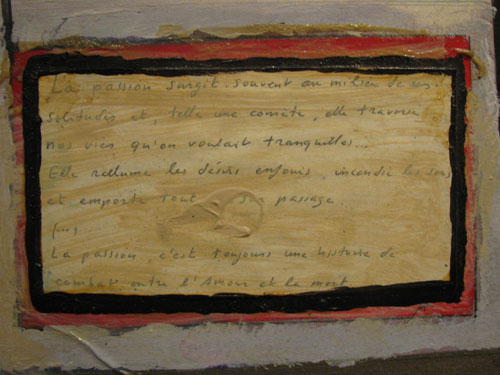 La passion surgit souvent au milieu de nos
solitudes et, telle une comète, elle traverse
nos vies qu'on voulait tranquilles...
Elle rallume les désirs enfouis, incendie les sens
et emporte tout sur son passage
La passion, c'est toujours une histoire de
combats entre l'Amour et la mort